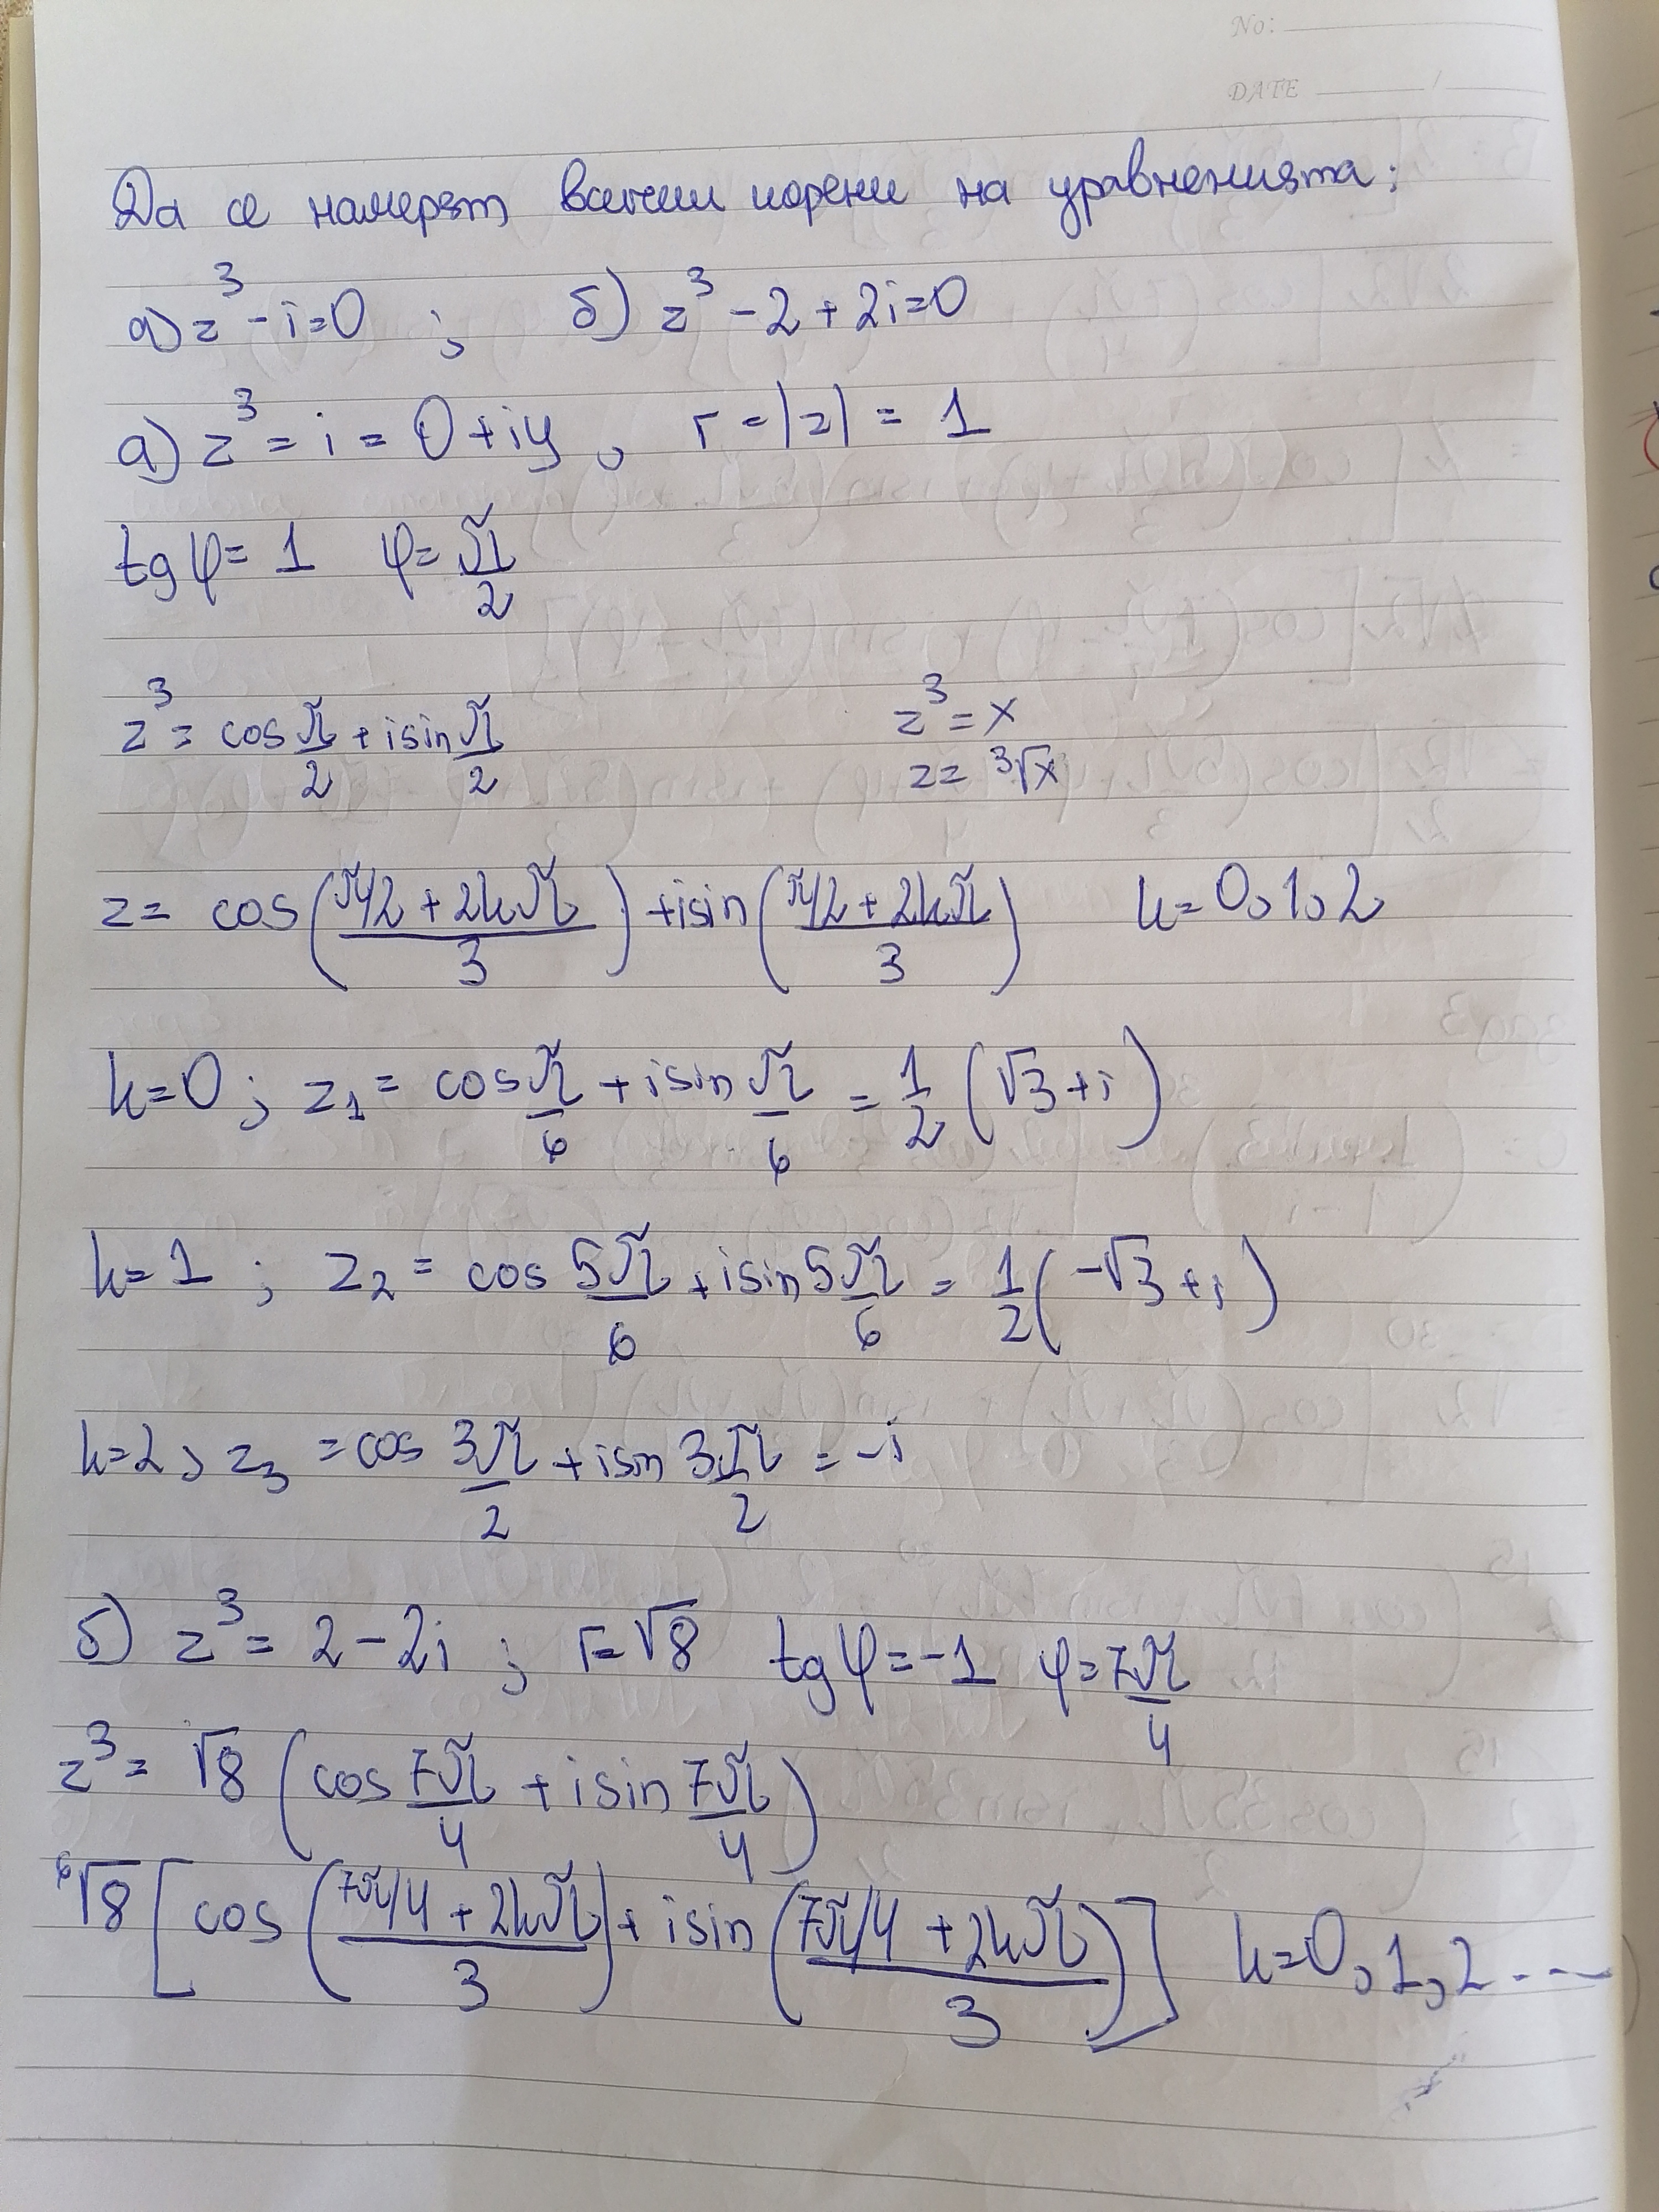 No:
DATE /
Да се намерят всички корени на уравненията:
а) z³ - i = 0 ; б) z³ - 2 + 2i = 0
а) z³ = i = 0 + iy , r = |z| = 1
tgφ = 1 φ = π/2
z³ = cos π/2 + isin π/2
z³ = x
z = ³√x
z = cos((π/2 + 2kπ)/3) + isin((π/2 + 2kπ)/3) k = 0, 1, 2
k = 0 ; z₁ = cos π/6 + isin π/6 = 1/2 (√3 + i)
k = 1 ; z₂ = cos 5π/6 + isin 5π/6 = 1/2 (-√3 + i)
k = 2, z₃ = cos 3π/2 + isin 3π/2 = -i
б) z³ = 2 - 2i ; r = √8 tgφ = -1 φ = 7π/4
z³ = √8 (cos 7π/4 + isin 7π/4)
⁶√8 [cos((7π/4 + 2kπ)/3) + isin((7π/4 + 2kπ)/3)] k = 0, 1, 2 ----